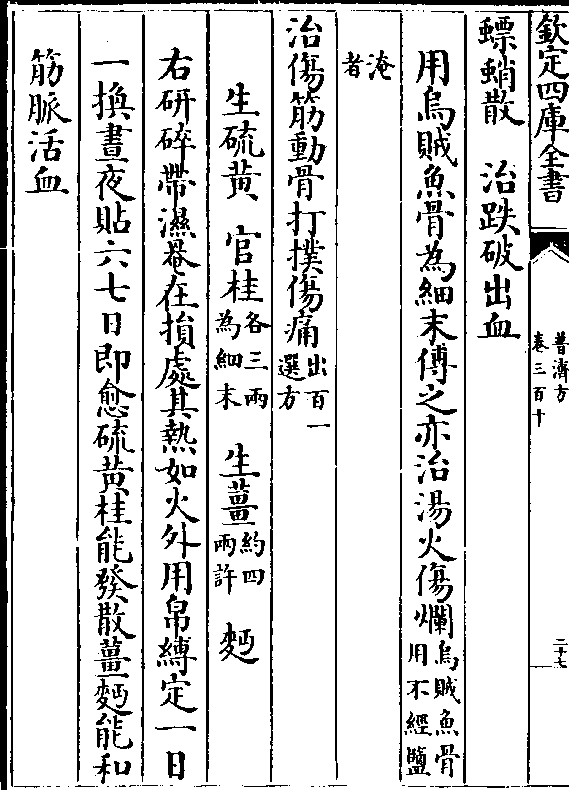 欽定四庫全書
普濟方
卷三百十
二十七
螵蛸散 治跌破出血
用烏賊魚骨為細末傅之亦治湯火傷爛烏賊魚骨用不經鹽
淹者
治傷筋動骨打撲傷痛出百一選方
生硫黃 官桂各三兩為細末 生薑約四兩許 麪
右研碎帶濕罨在損處其熱如火外用帛縛定一日
一換晝夜貼六七日即愈硫黃桂能發散薑麪能和
筋脈活血